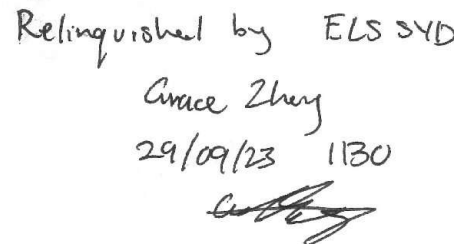 Relinquished by ELS SYD
Grace Zheng
29/09/23 1130